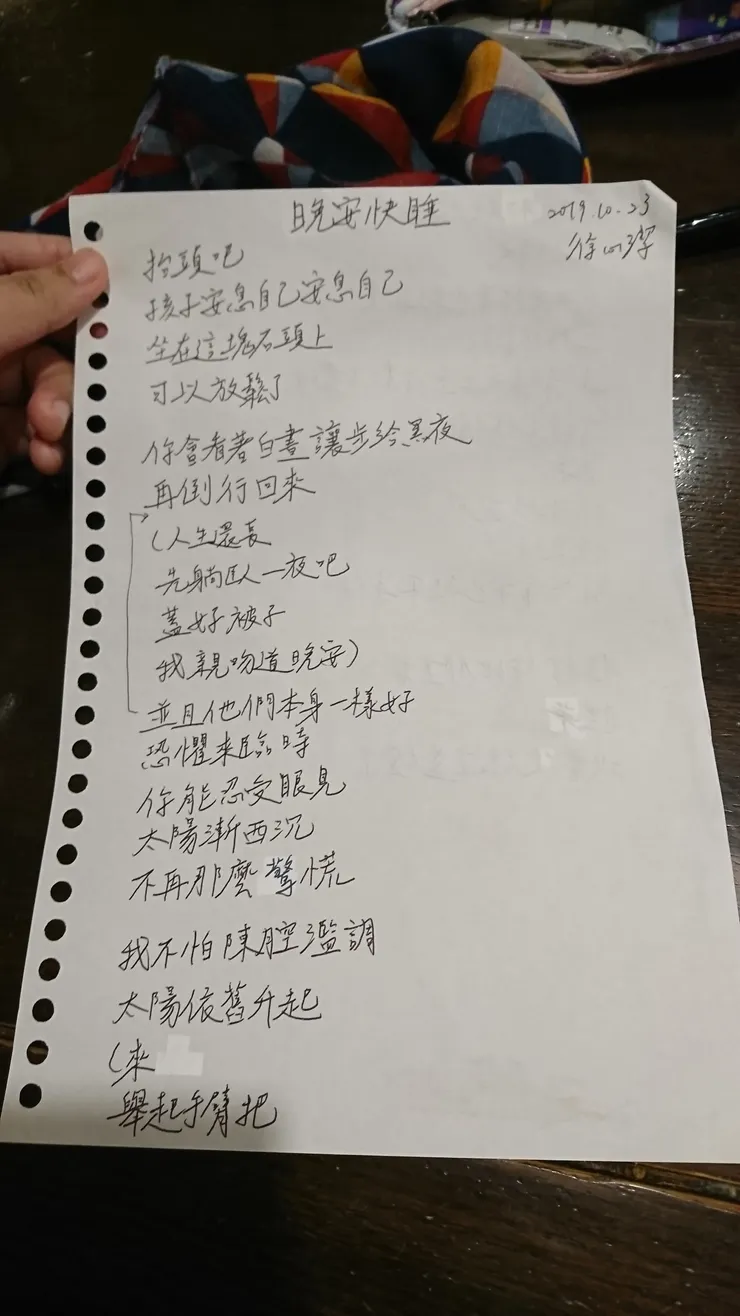 晚安快睡
2019.10.23
抬頭吧
孩子安息自己安息自己
坐在這塊石頭上
可以放鬆了
你會看著白晝讓步給黑夜
再倒行回來
(人生還長
先躺臥一夜吧
蓋好被子
我親吻道晚安)
並且他們本身一樣好
恐懼來臨時
你能忍受眼見
太陽漸西沉
不再那麼驚慌
我不怕陳腔濫調
太陽依舊升起
(來
舉起手臂把